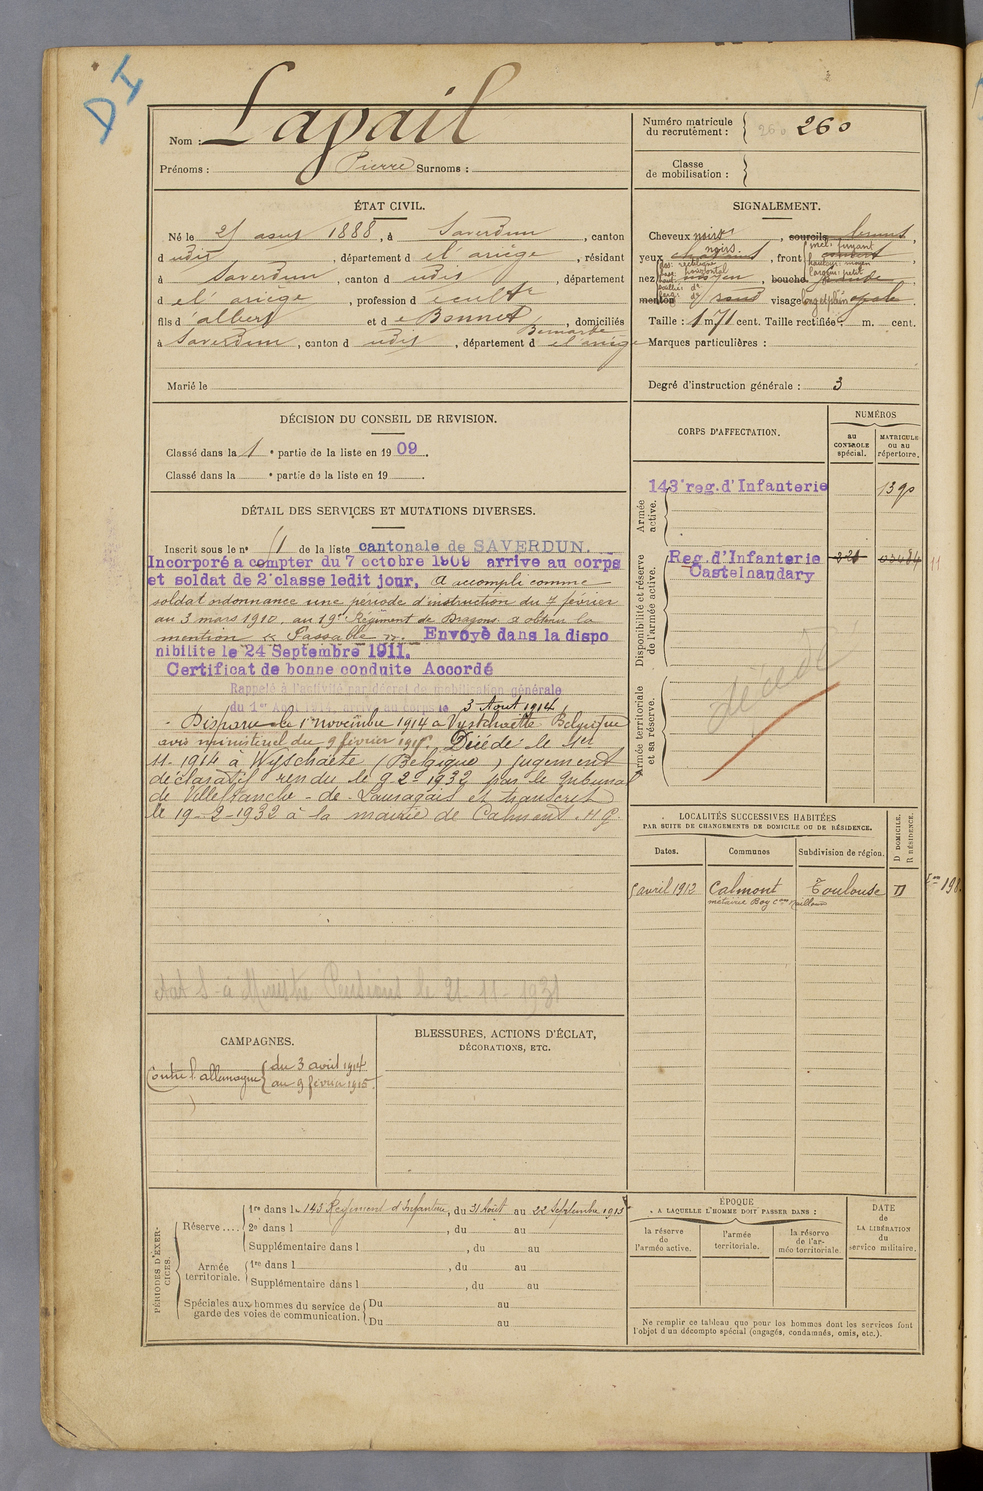 DI
Nom : Lapail
Prénoms : Pierre Surnoms :
Numéro matricule du recrutement : 260 260
Classe de mobilisation :
ÉTAT CIVIL.
Né le 21 aout 1888, à Saverdun, canton
dudis, département de l'ariège, résidant
à Saverdun, canton dudis, département
de l'ariège, profession de cult
fils d'albert et de Bonnet Bernarde, domiciliés
à Saverdun, canton dudis, département de l'ariège
Marié le
SIGNALEMENT.
Cheveux noirs, sourcils bruns,
yeux noirs, front incl: fuyant
hauteur: moyen
largeur: petit
nez dos: rectiligne
base: horizontal
moyen, bouche
menton rond visage long et plein
Taille : 1 m 71 cent. Taille rectifiée : m. cent.
Marques particulières :
Degré d'instruction générale : 3
DÉCISION DU CONSEIL DE REVISION.
Classé dans la 1e partie de la liste en 1909.
Classé dans la e partie de la liste en 19 .
CORPS D'AFFECTATION.
NUMÉROS
au CONTROLE spécial.
MATRICULE ou au répertoire.
Armée active.
143e reg. d'Infanterie 1390
Disponibilité et réserve de l'armée active.
Reg. d'Infanterie
Castelnaudary
11
Armée territoriale et sa réserve.
décédé
DÉTAIL DES SERVICES ET MUTATIONS DIVERSES.
Inscrit sous le no 41 de la liste cantonale de SAVERDUN.
Incorporé a compter du 7 octobre 1909 arrive au corps
et soldat de 2e classe ledit jour. A accompli comme
soldat ordonnance une période d'instruction du 7 février
au 3 mars 1910, au 19e Régiment de Dragons a obtenu la
mention « Passable ». Envoyé dans la dispo
nibilite le 24 Septembre 1911.
Certificat de bonne conduite Accordé
Rappelé à l'activité par décret de mobilisation générale
du 1er Août 1914, arrivé au corps le 3 Aout 1914.
- Disparu le 1er novembre 1914 à Vystchaëtte Belgique
avis ministériel du 9 février 1915. Décédé le 1er
11-1914 à Wyschaëte (Belgique) jugement
déclaratif rendu le 9-2-1932 par le tribunal
de Villefranche-de-Lauragais et transcrit
le 19-2-1932 à la mairie de Calmont. H.G.
LOCALITÉS SUCCESSIVES HABITÉES
PAR SUITE DE CHANGEMENTS DE DOMICILE OU DE RÉSIDENCE.
Dates. Communes Subdivision de région. D DOMICILE. R RÉSIDENCE.
5 avril 1912 Calmont Toulouse D
métairie Boy
Etat S-à Ministre Pensions le 21-11-1931
CAMPAGNES.
Contre l'allemagne du 3 avril 1914
au 9 février 1915
BLESSURES, ACTIONS D'ÉCLAT,
DÉCORATIONS, ETC.
PÉRIODES D'EXERCICES.
Réserve .... 1re dans le 143 Régiment d'Infanterie, du 31 Août au 22 Septembre 1913
2e dans l , du au
Supplémentaire dans l , du au
Armée territoriale. 1re dans l , du au
Supplémentaire dans l , du au
Spéciales aux hommes du service de garde des voies de communication. Du au
Du au
ÉPOQUE
A LAQUELLE L'HOMME DOIT PASSER DANS :
la réserve de l'armée active.
l'armée territoriale.
la réserve de l'armée territoriale.
DATE de LA LIBÉRATION du service militaire.
Ne remplir ce tableau que pour les hommes dont les services font
l'objet d'un décompte spécial (engagés, condamnés, omis, etc.).